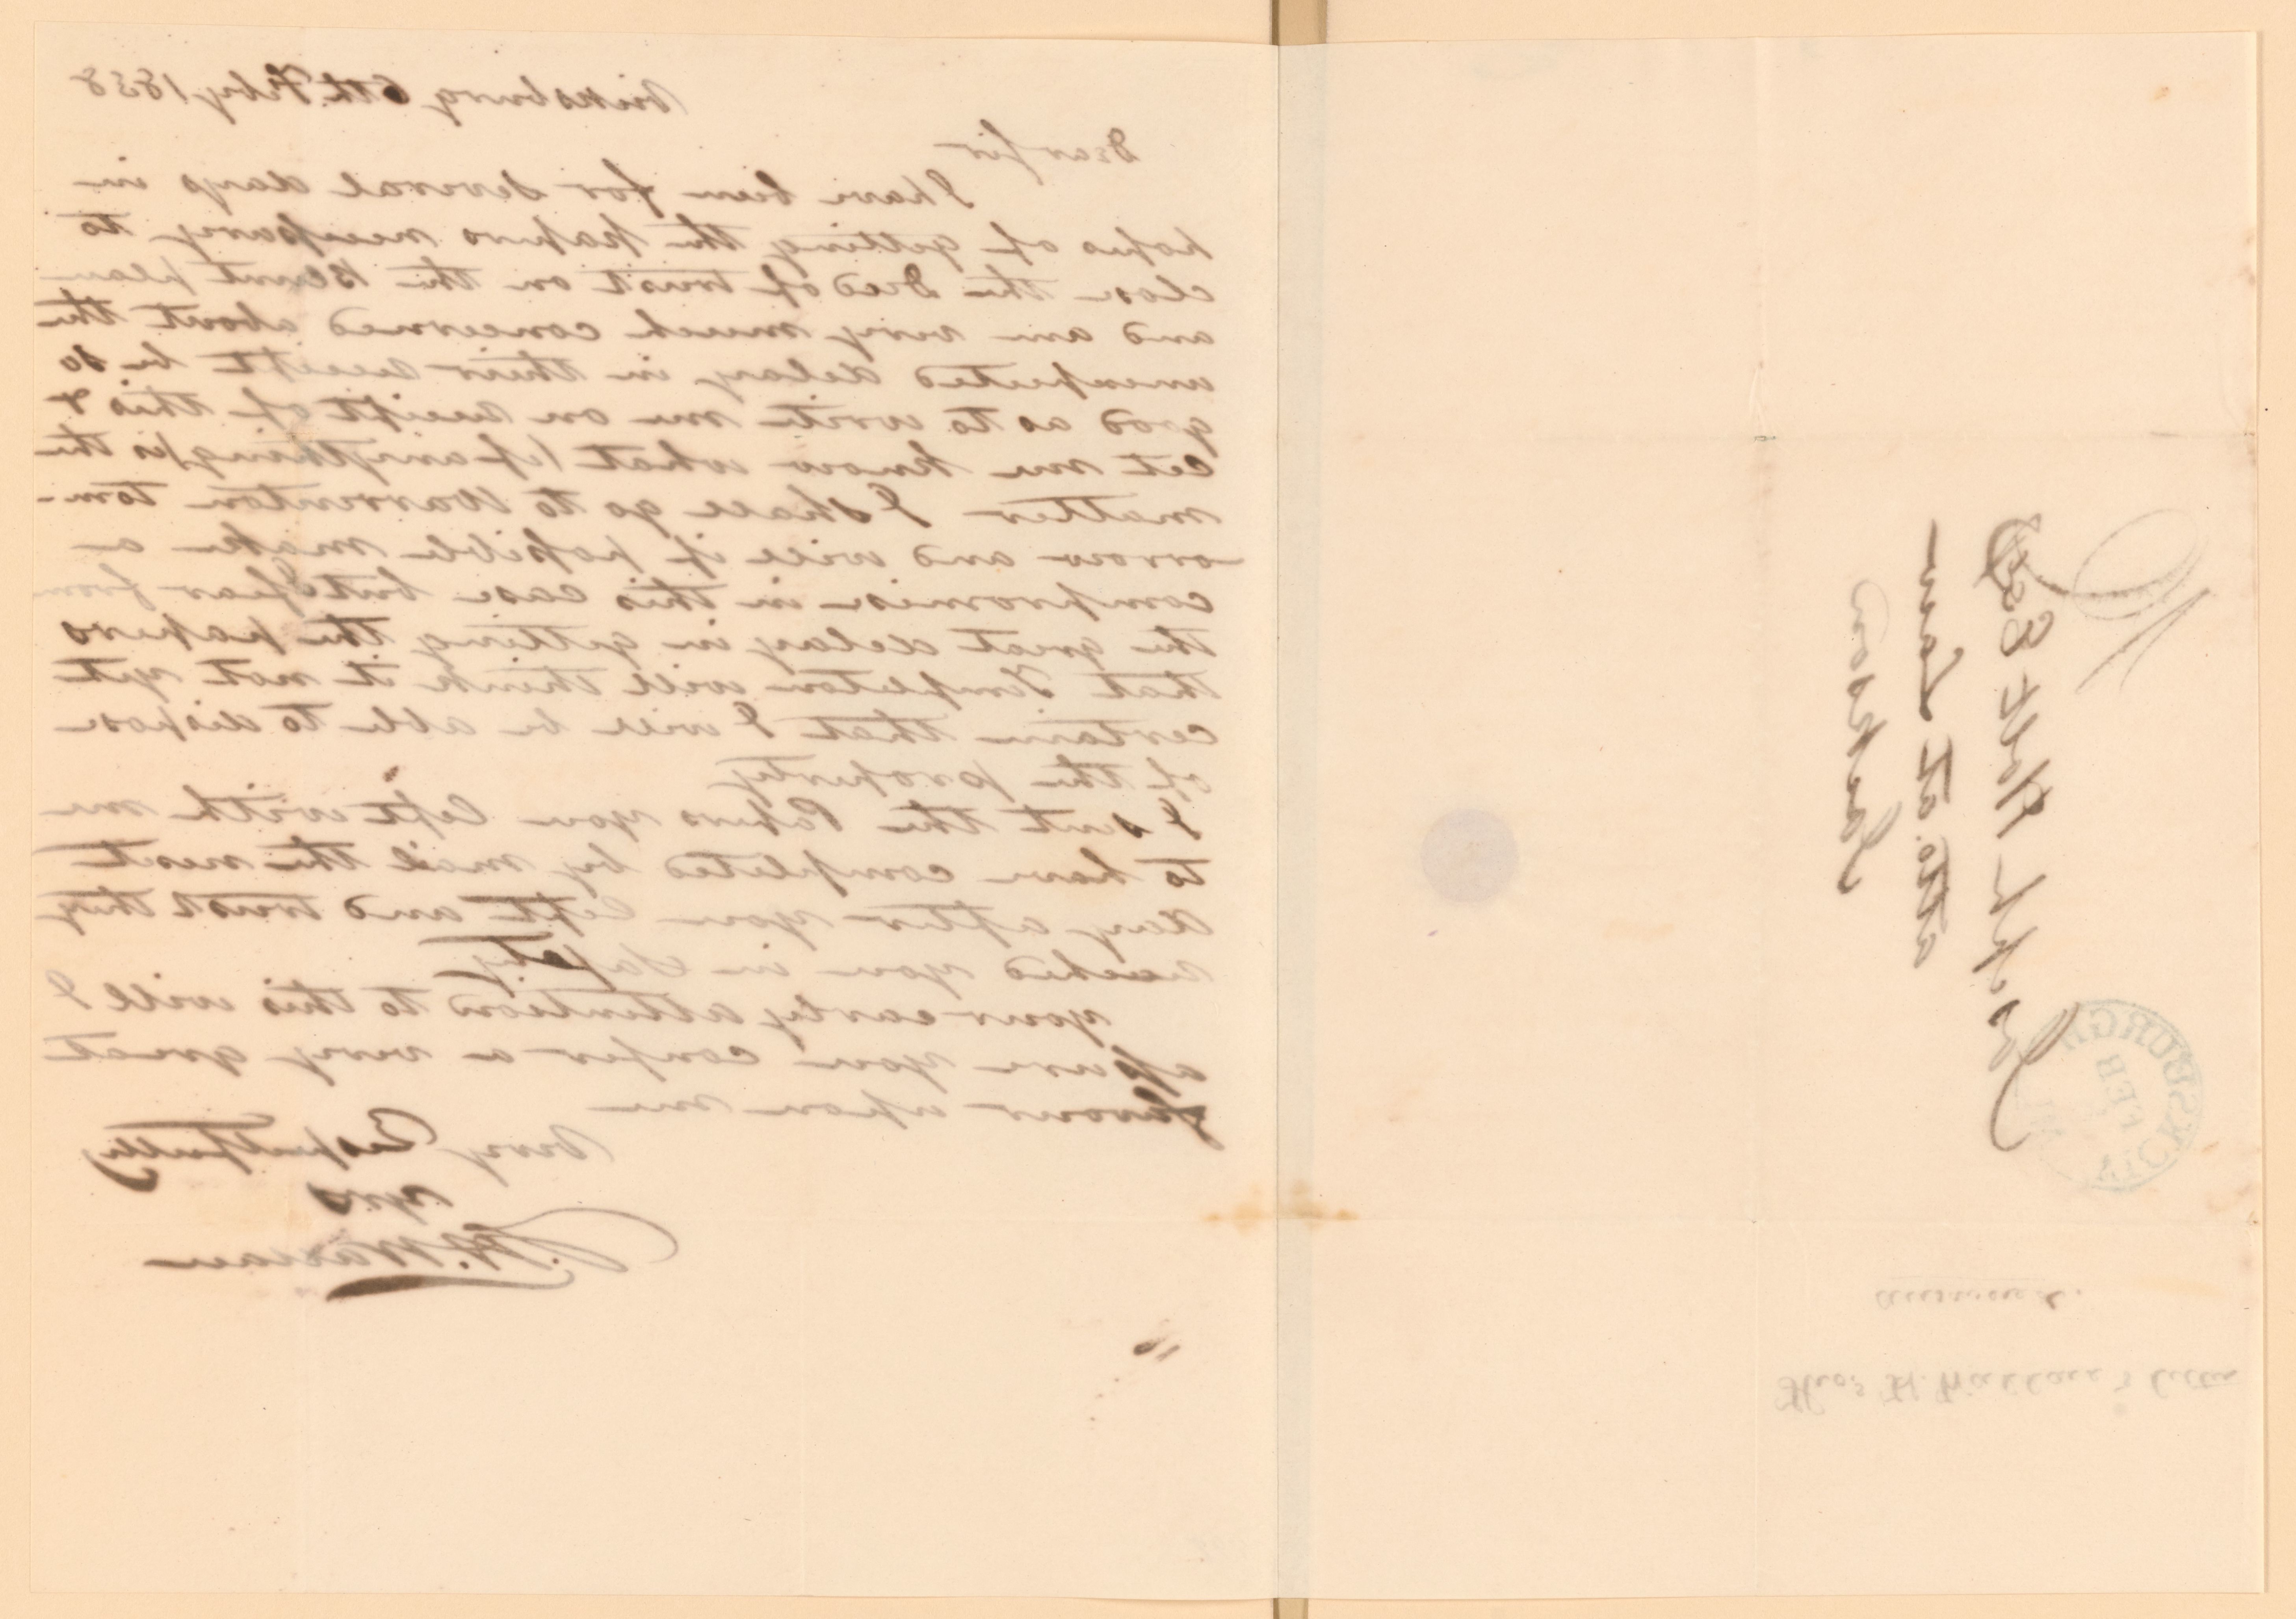 Vicksburg 6th Feby 1838
Dear Sir
I have been for several days in
hopes of getting the papers necessary to
close the Deed of trust on the Blunt plan
and am very much concerned about the
unexpected delay in their receipt be so
good as to write me on receipt of this &
let me know what (if anything) is the
matter I shall go to Warrenton tom-
orrow and will if possible make a
compromise in this case but I fear from
the great delay in getting the papers
that Templeton will think it not yet
certain that I will be able to dispose
of the property
I sent the Papers you left with me
to have completed by mail the next
day after you left and trust they
reached you in safety
your early attention to this will I
assure you confer a very great
favour upon me
Very Respectfully
yrs
H. Wallace
Jackson
VICKSBURGH
FEB
answered
Thos H. Wallace's letter